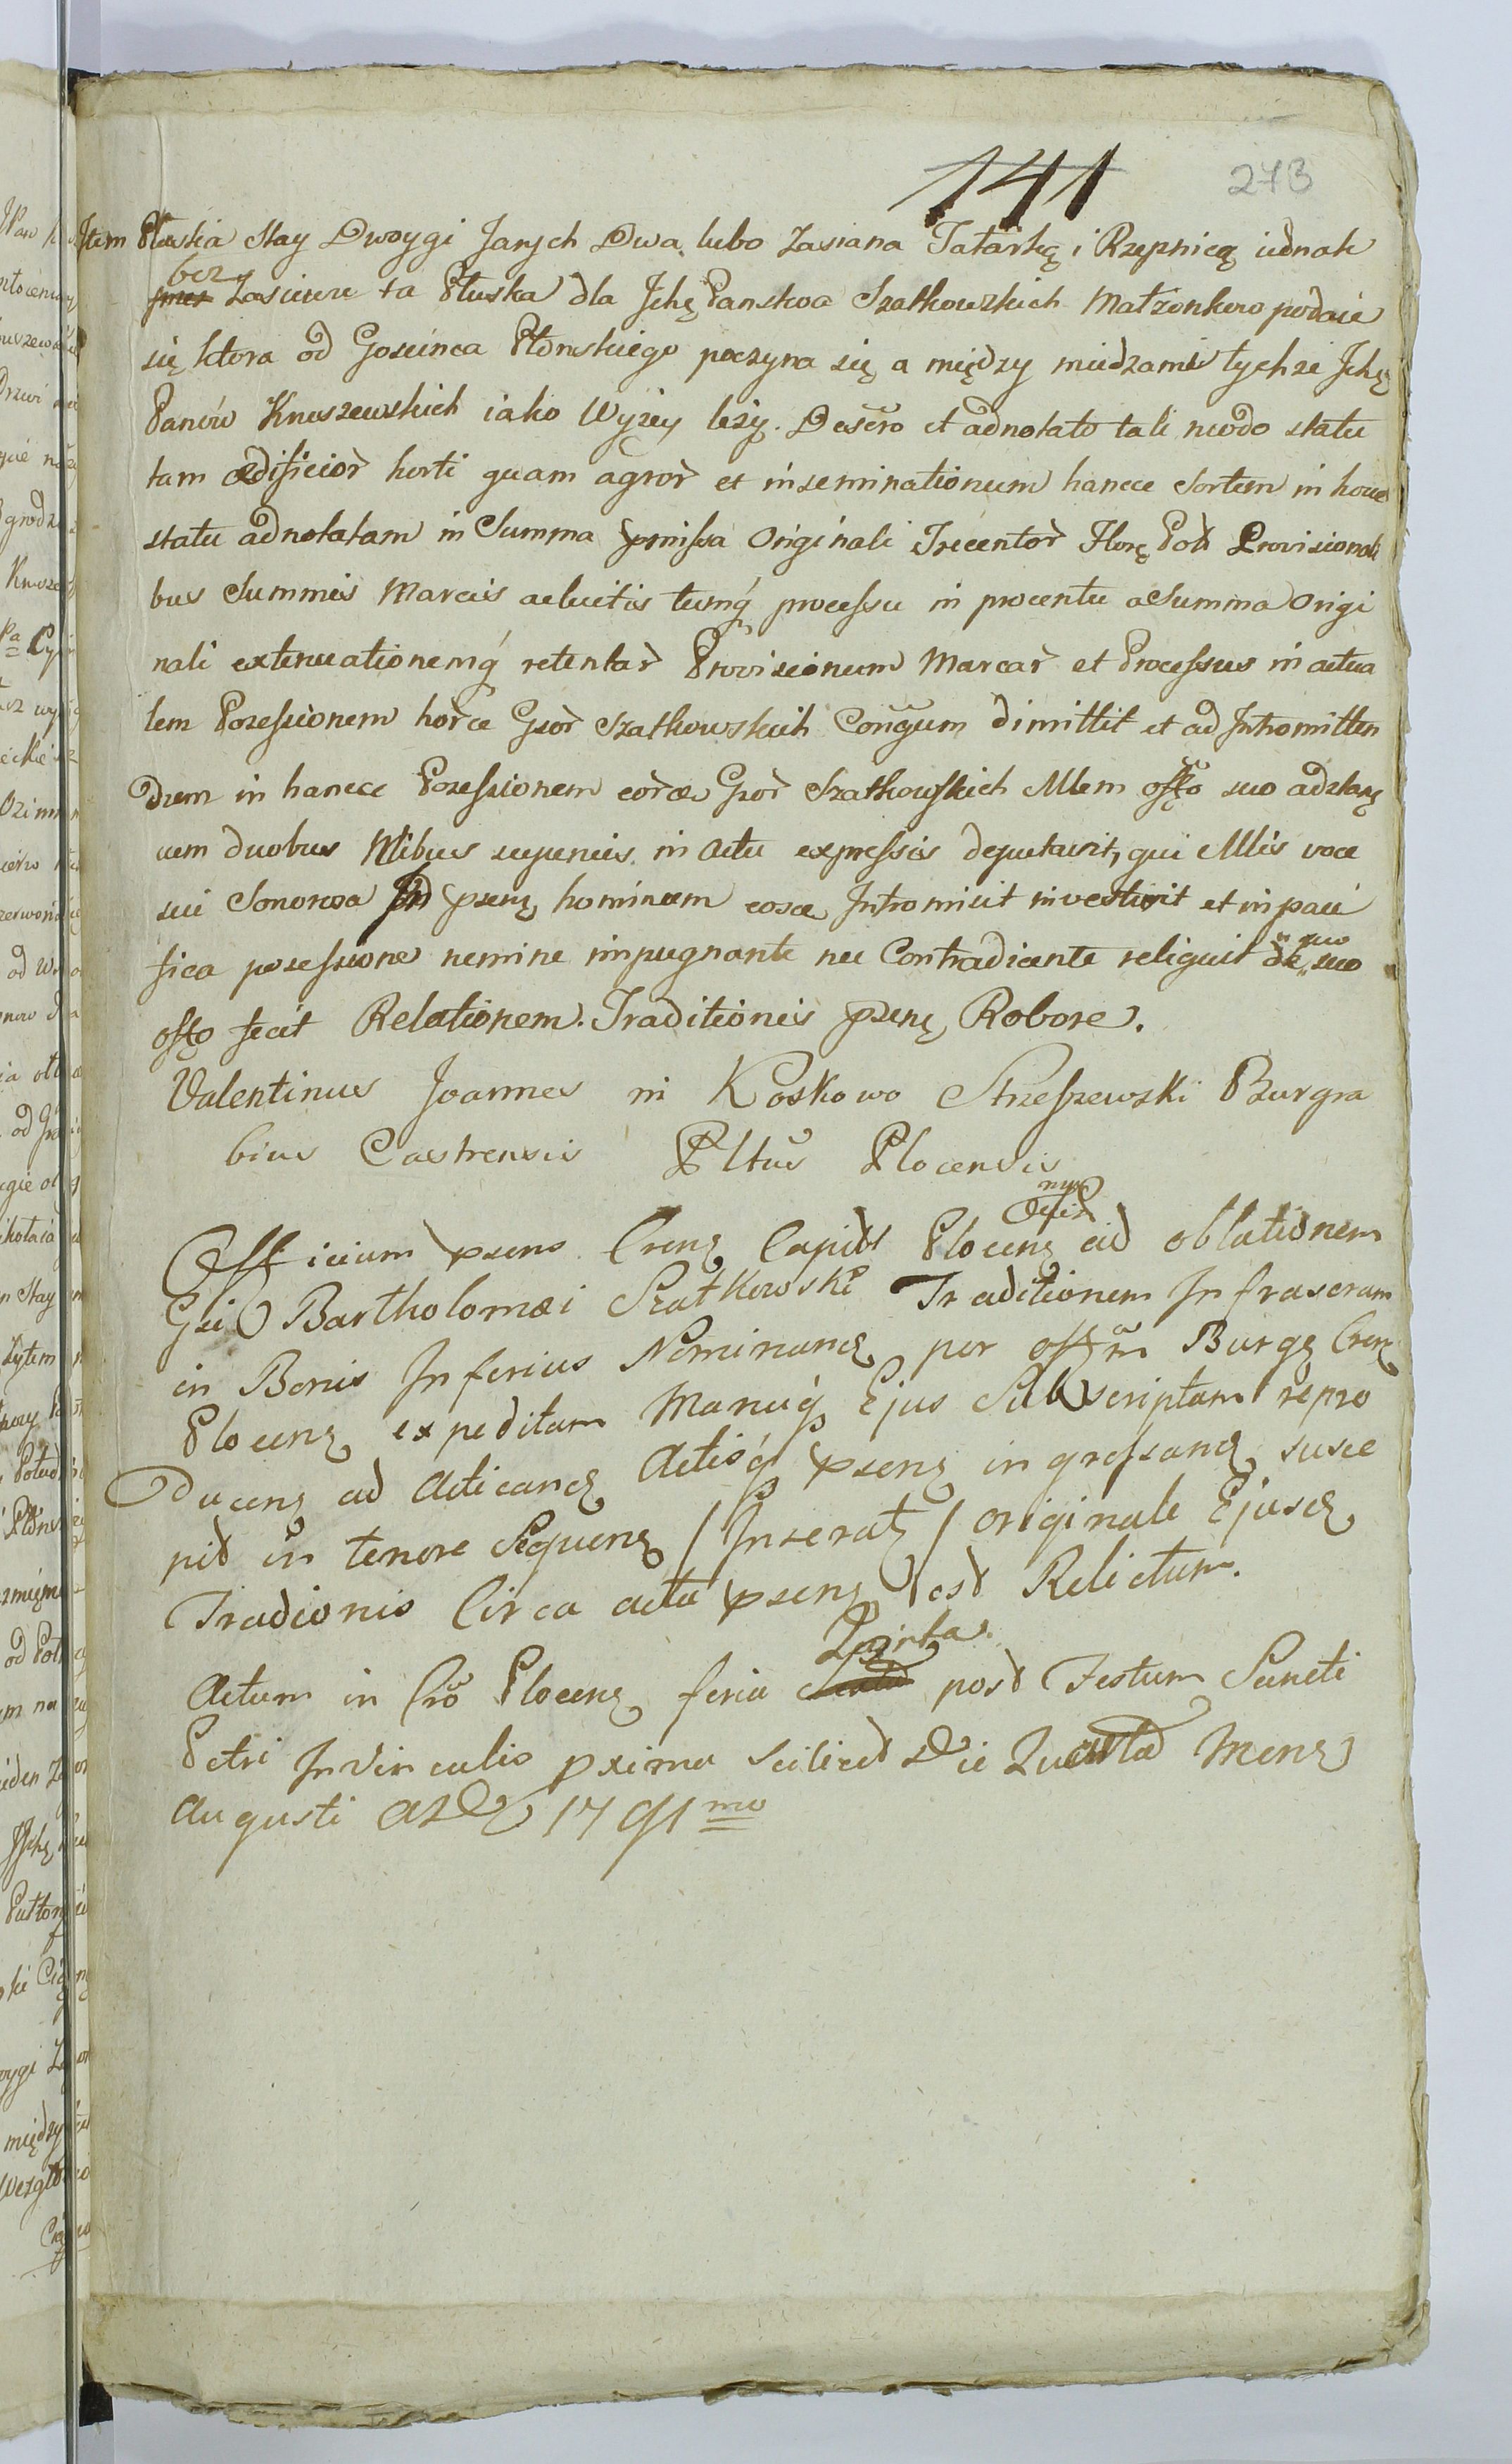 141 273
Item Płuska Stay Dwoygi Jarych Dwa lubo Zasiana Tatarką i Rzepnicą iednak
bez
Zasiewu ta Płuska dla Jchę Panstwa Szatkowskich Małżonkow podaie
się ktora od Goscinca Płonskiego poczyna się a między miedzami tychże Jchę
Panów Knuszewskich iako Wyzey leży. Descro et adnotato tali modo statu
tam ædificior horti quam agror et inseminationum hancce Sortem in hocce
statu adnotatam in Summa pmissa Originali Trecentor Florę Pol Provisionali
bus Summis Marcis acluitis tumq́ processu in procentu a Summa Origi
nali extenuationemq́ retentar Provisionum Marcar et Processus in actua
lem Possessionem horce Gsor Szatkowskich Conğum dimittit et ad Intromitten
dum in hancce Possessionem eorce Gsor Szatkowskich Mlem offo suo adstanę
cum duobus Mlibus superius in Actu expressis deputavit, qui Mlis voce
sui Sonorosa In psenę hominum eosce Intromisit investivit et in paci
fica possessione nemine impugnante nec Contradicente reliquit de suo
offo fecit Relationem. Traditionis psenę Robore.
Valentinus Joannes in Koskowo Strzeszewski Burgra
bius Castrensis Pltus Plocensis
Officium psens Crens Capitl Plocens ad oblationem
Gsi Bartholomæi Szatkowski Traditionem Infrascram
in Bonis Inferius Nominand per offm Burgę Crens
Plocens expeditam Manuq́ Ejus Subscriptam repro
Ducens ad Acticand Actisq́ psens ingrossand susce
pit in tenore Sequens / Inserat / originale Ejusd
Tradionis Circa acta psens est Relictum.
Quinta
Actum in Cro Plocens feria post Festum Sancti
Petri In Vinculis proxima Scilicet Die Quarta Mens
Augusti A D 1791 mo